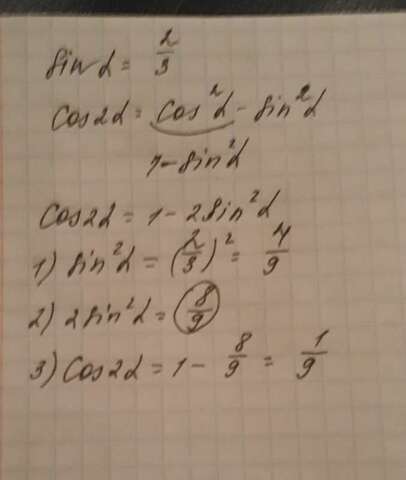 sin α = 2/3
cos2α = cos²α - sin²α
1 - sin²α
cos2α = 1 - 2sin²α
1) sin²α = (2/3)² = 4/9
2) 2sin²α = 8/9
3) cos2α = 1 - 8/9 = 1/9